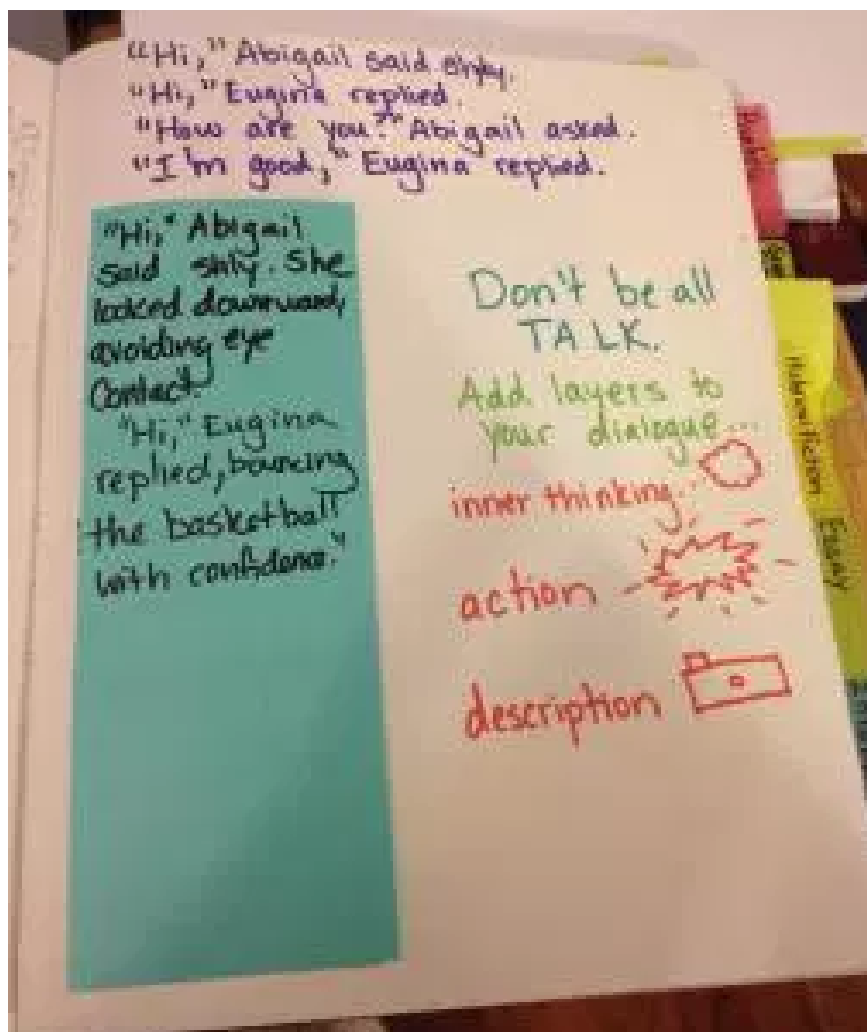 "Hi," Abigail said shyly.
"Hi," Eugina replied.
"How are you?" Abigail asked.
"I'm good," Eugina replied.
"Hi," Abigail
said shly. She
looked downward,
avoiding eye
Contact.
"Hi," Eugina
replied, bouncing
the basketball
with confidence."
Don't be all
TALK.
Add layers to
your dialogue...
inner thinking..
action
description
fiction
Essay